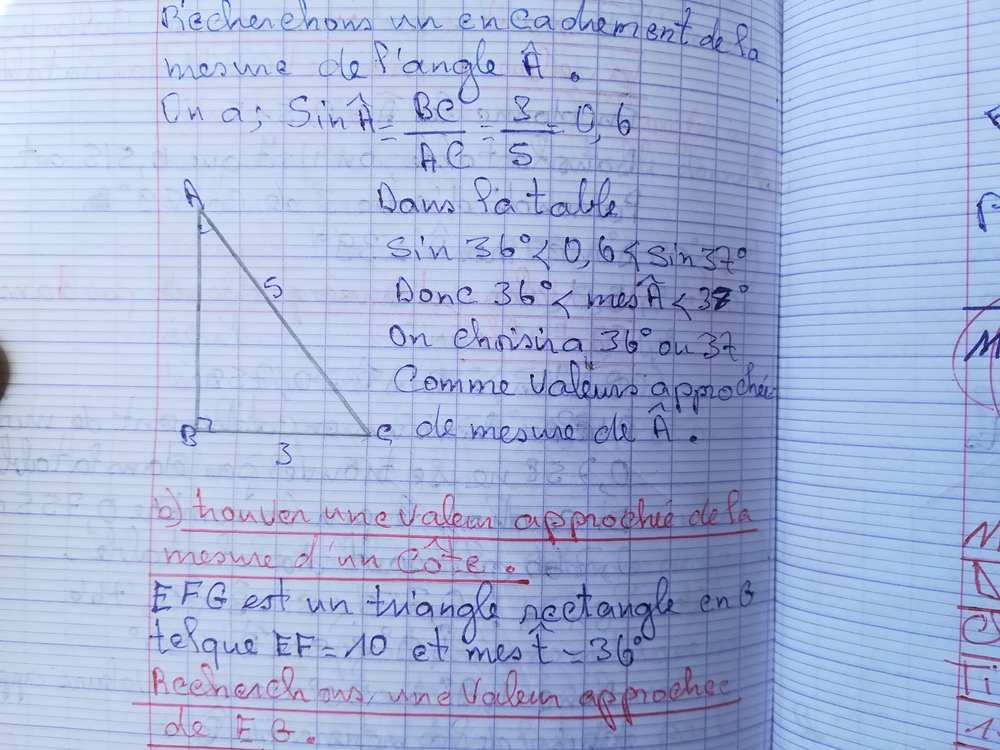 Recherchons un encadrement de la
mesure de l'angle Â.
On a; Sin Â = BC/AC = 3/5 = 0,6
A
Dans la table
Sin 36° < 0,6 < Sin 37°
5
Donc 36° < mes  < 38°
On choisira 36° ou 37
Comme valeurs approchée
B
C
de mesure de Â.
3
b) trouver une valeur approchée de la
mesure d'un côte.
EFG est un triangle rectangle en G
telque EF = 10 et mes = 36°
Recherchons une valeur approchée
de EG.